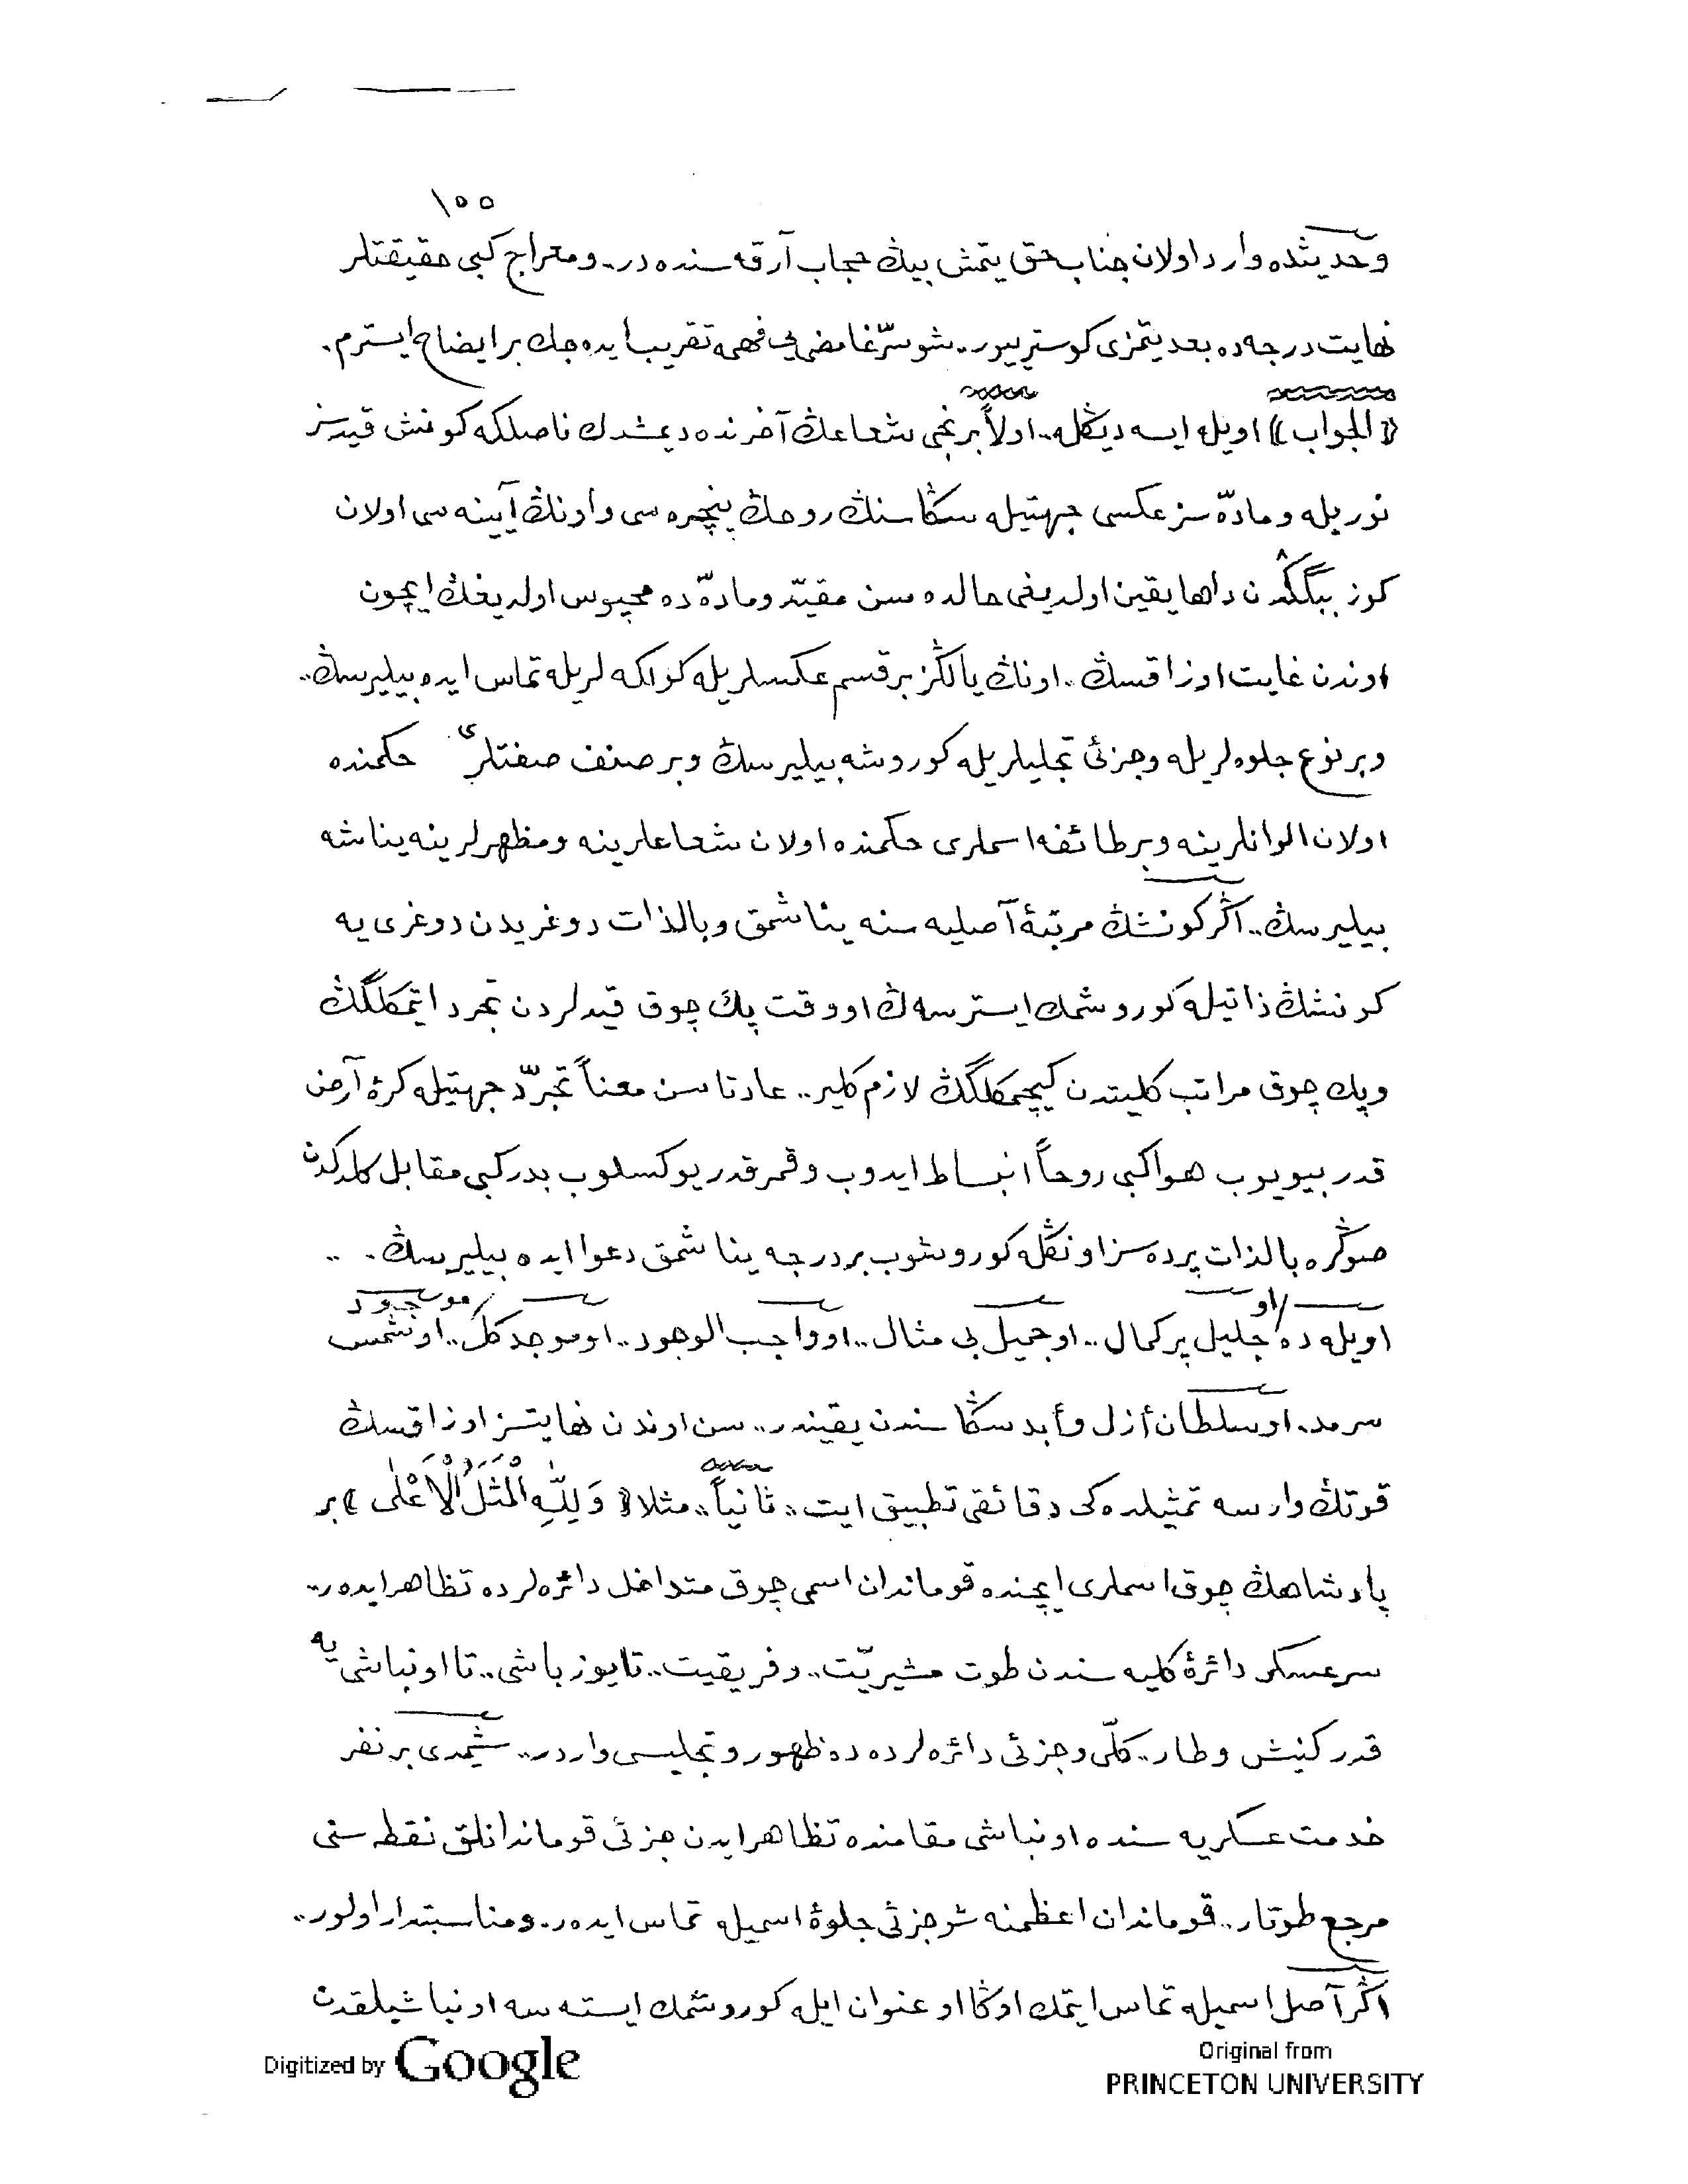 ١٥٥
وحديثده وارد اولان جناب حق يتمش بيڭ حجاب آرقه سنده در.. ومعراج كبى حقيقتلر
نهايت درجه ده بعديتمزى كوستريیور.. شو سرّ غامضى يى فهمه تقريب ايده جك بر ايضاح ايسترم.
﴿الجواب﴾ اويله ايسه ديڭله.. اولاً برنجى شعاعڭ آخرنده ديمشدك نا صلكه كونش قيدسز
نوريله و مادّه سز عكسى جهتيله سڭا سنڭ روحڭ پنجره سى و اونڭ آيينه سى اولان
كوز ببگڭدن داها يقين اولديغى حالده سن مقيّد ومادّه ده محبوس اولديغڭ ايچون
اوندن غايت اوزاقسڭ.. اونڭ يالڭز بر قسم عكسلريله كولگه لريله تماس ايده بيليرسڭ..
وبر نوع جلوه لريله وجزئى تجليلريله كوروشه بيليرسڭ وبر صنف صفتلرى حكمنده
اولان الوانلرينه وبر طائفه اسملرى حكمنده اولان شعاعلرينه ومظهرلرينه يناشه
بيليرسڭ.. اڭر كونشڭ مرتبۀ آصليه سنه يناشمق وبالذات دوغريدن دوغرى يه
كونشڭ ذاتيله كوروشمك ايسترسه ڭ او وقت پك چوق قيدلردن تجرد ايتمكلگڭ
وپك چوق مراتب كليتدن گيچمكلگڭ لازم كلير.. عادتا سن معناً تجرّد جهتيله كرۀ آرض
قدر بيويوب هوا كبى روحاً انبساط ايدوب وقمر قدر يوكسلوب بدر كبى مقابل كلدكدن
صوڭره بالذات پرده سز اونڭله كوروشوب بر درجه يناشمق دعوا ايده بيليرسڭ. ..
اويله ده او جليل پر كمال.. او جميل بى مثال.. او واجب الوجود.. او موجد كل موجود.. او شمس
سرمد. او سلطان أزل وأبد سڭا سندن يقيندر.. سن اوندن نهايتسز اوزاقسڭ
قوتڭ وارسه تمثيلده كى دقائقى تطبيق ايت.. ثانياً.. مثلا ﴿وَلِلّٰهِ الْمَثَلُ الْاَعْلٰى﴾ بر
پادشاهڭ چوق اسملرى ايچنده قوماندان اسمى چوق متداخل دائره لرده تظاهر ايده ر..
سرعسكر دائرۀ كليه سندن طوت مشيريّت.. وفريقيت.. تا يوزباشى.. تا اونباشى يه
قدر كنيش وطار.. كلّى وجزئى دائره لرده ده ظهور و تجليسى واردر.. شيمدى بر نفر
خدمت عسكريه سنده اونباشى مقامنده تظاهر ايدن جزئى قوماندانلق نقطه سنى
مرجع طوتار.. قوماندان اعظمنه شو جزئى جلوۀ اسميله تماس ايده ر.. ومناسبتدار اولور..
اڭر آصل اسميله تماس ايتمك اوڭا او عنوان ايله كوروشمك ايسته سه اونباشيلقدن
Digitized by Google
Original from
PRINCETON UNIVERSITY